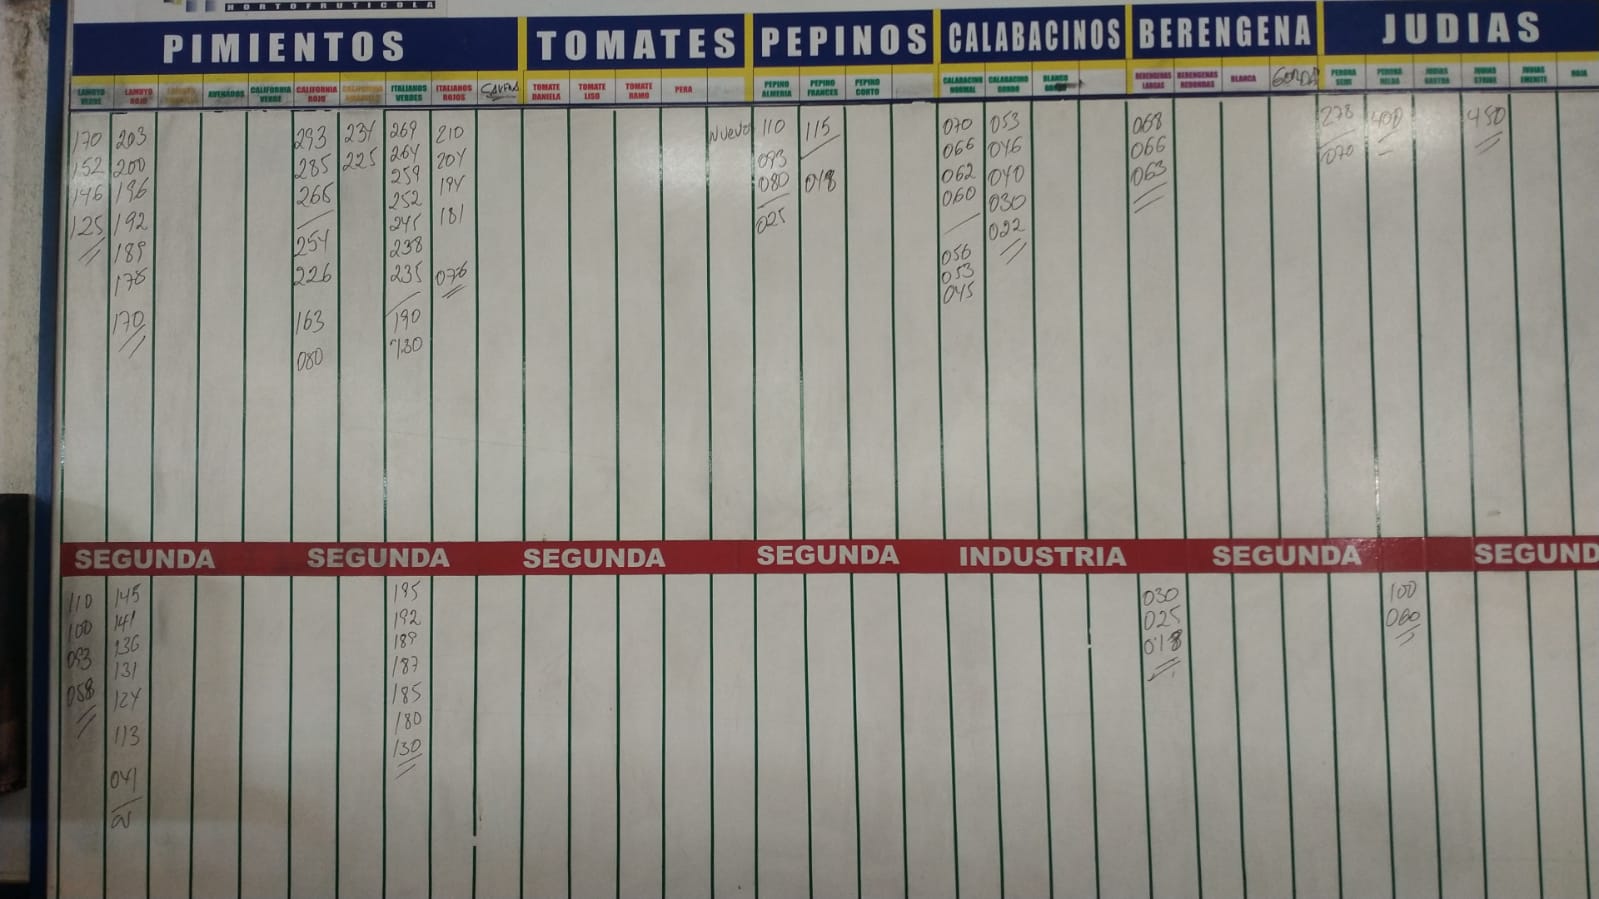 HORTOFRUTICOLA
PIMIENTOS TOMATES PEPINOS CALABACINOS BERENGENA JUDIAS
LAMUYO VERDE LAMUYO ROJO LAMUYO AMARILLO AVENADOS CALIFORNIA VERDE CALIFORNIA ROJO CALIFORNIA AMARILLO ITALIANOS VERDES ITALIANOS ROJOS TOMATE DANIELA TOMATE LISO TOMATE RAMO PERA PEPINO ALMERIA PEPINO FRANCES PEPINO CORTO CALABACINO NORMAL CALABACINO GORDO BLANCO GORDO BERENGENAS LARGAS BERENGENAS REDONDAS BLANCA GORDA PERONA SEMI PERONA HELDA JUDIAS RASTRA JUDIAS STRIKE JUDIAS EMERITE ROJA
170 203 293 234 269 210 Nuevo 110 115 070 053 068 278 400 450
152 200 285 225 264 204 093 066 046 066 070
146 196 265 259 194 080 018 062 040 063
125 192 254 252 181 025 060 030
189 226 245 076 056 022
178 163 238 053
170 080 235 045
190
130
SEGUNDA SEGUNDA SEGUNDA SEGUNDA INDUSTRIA SEGUNDA SEGUND
110 145 195 030 100
100 141 192 025 060
093 136 189 018
058 131 187
124 185
113 180
041 130